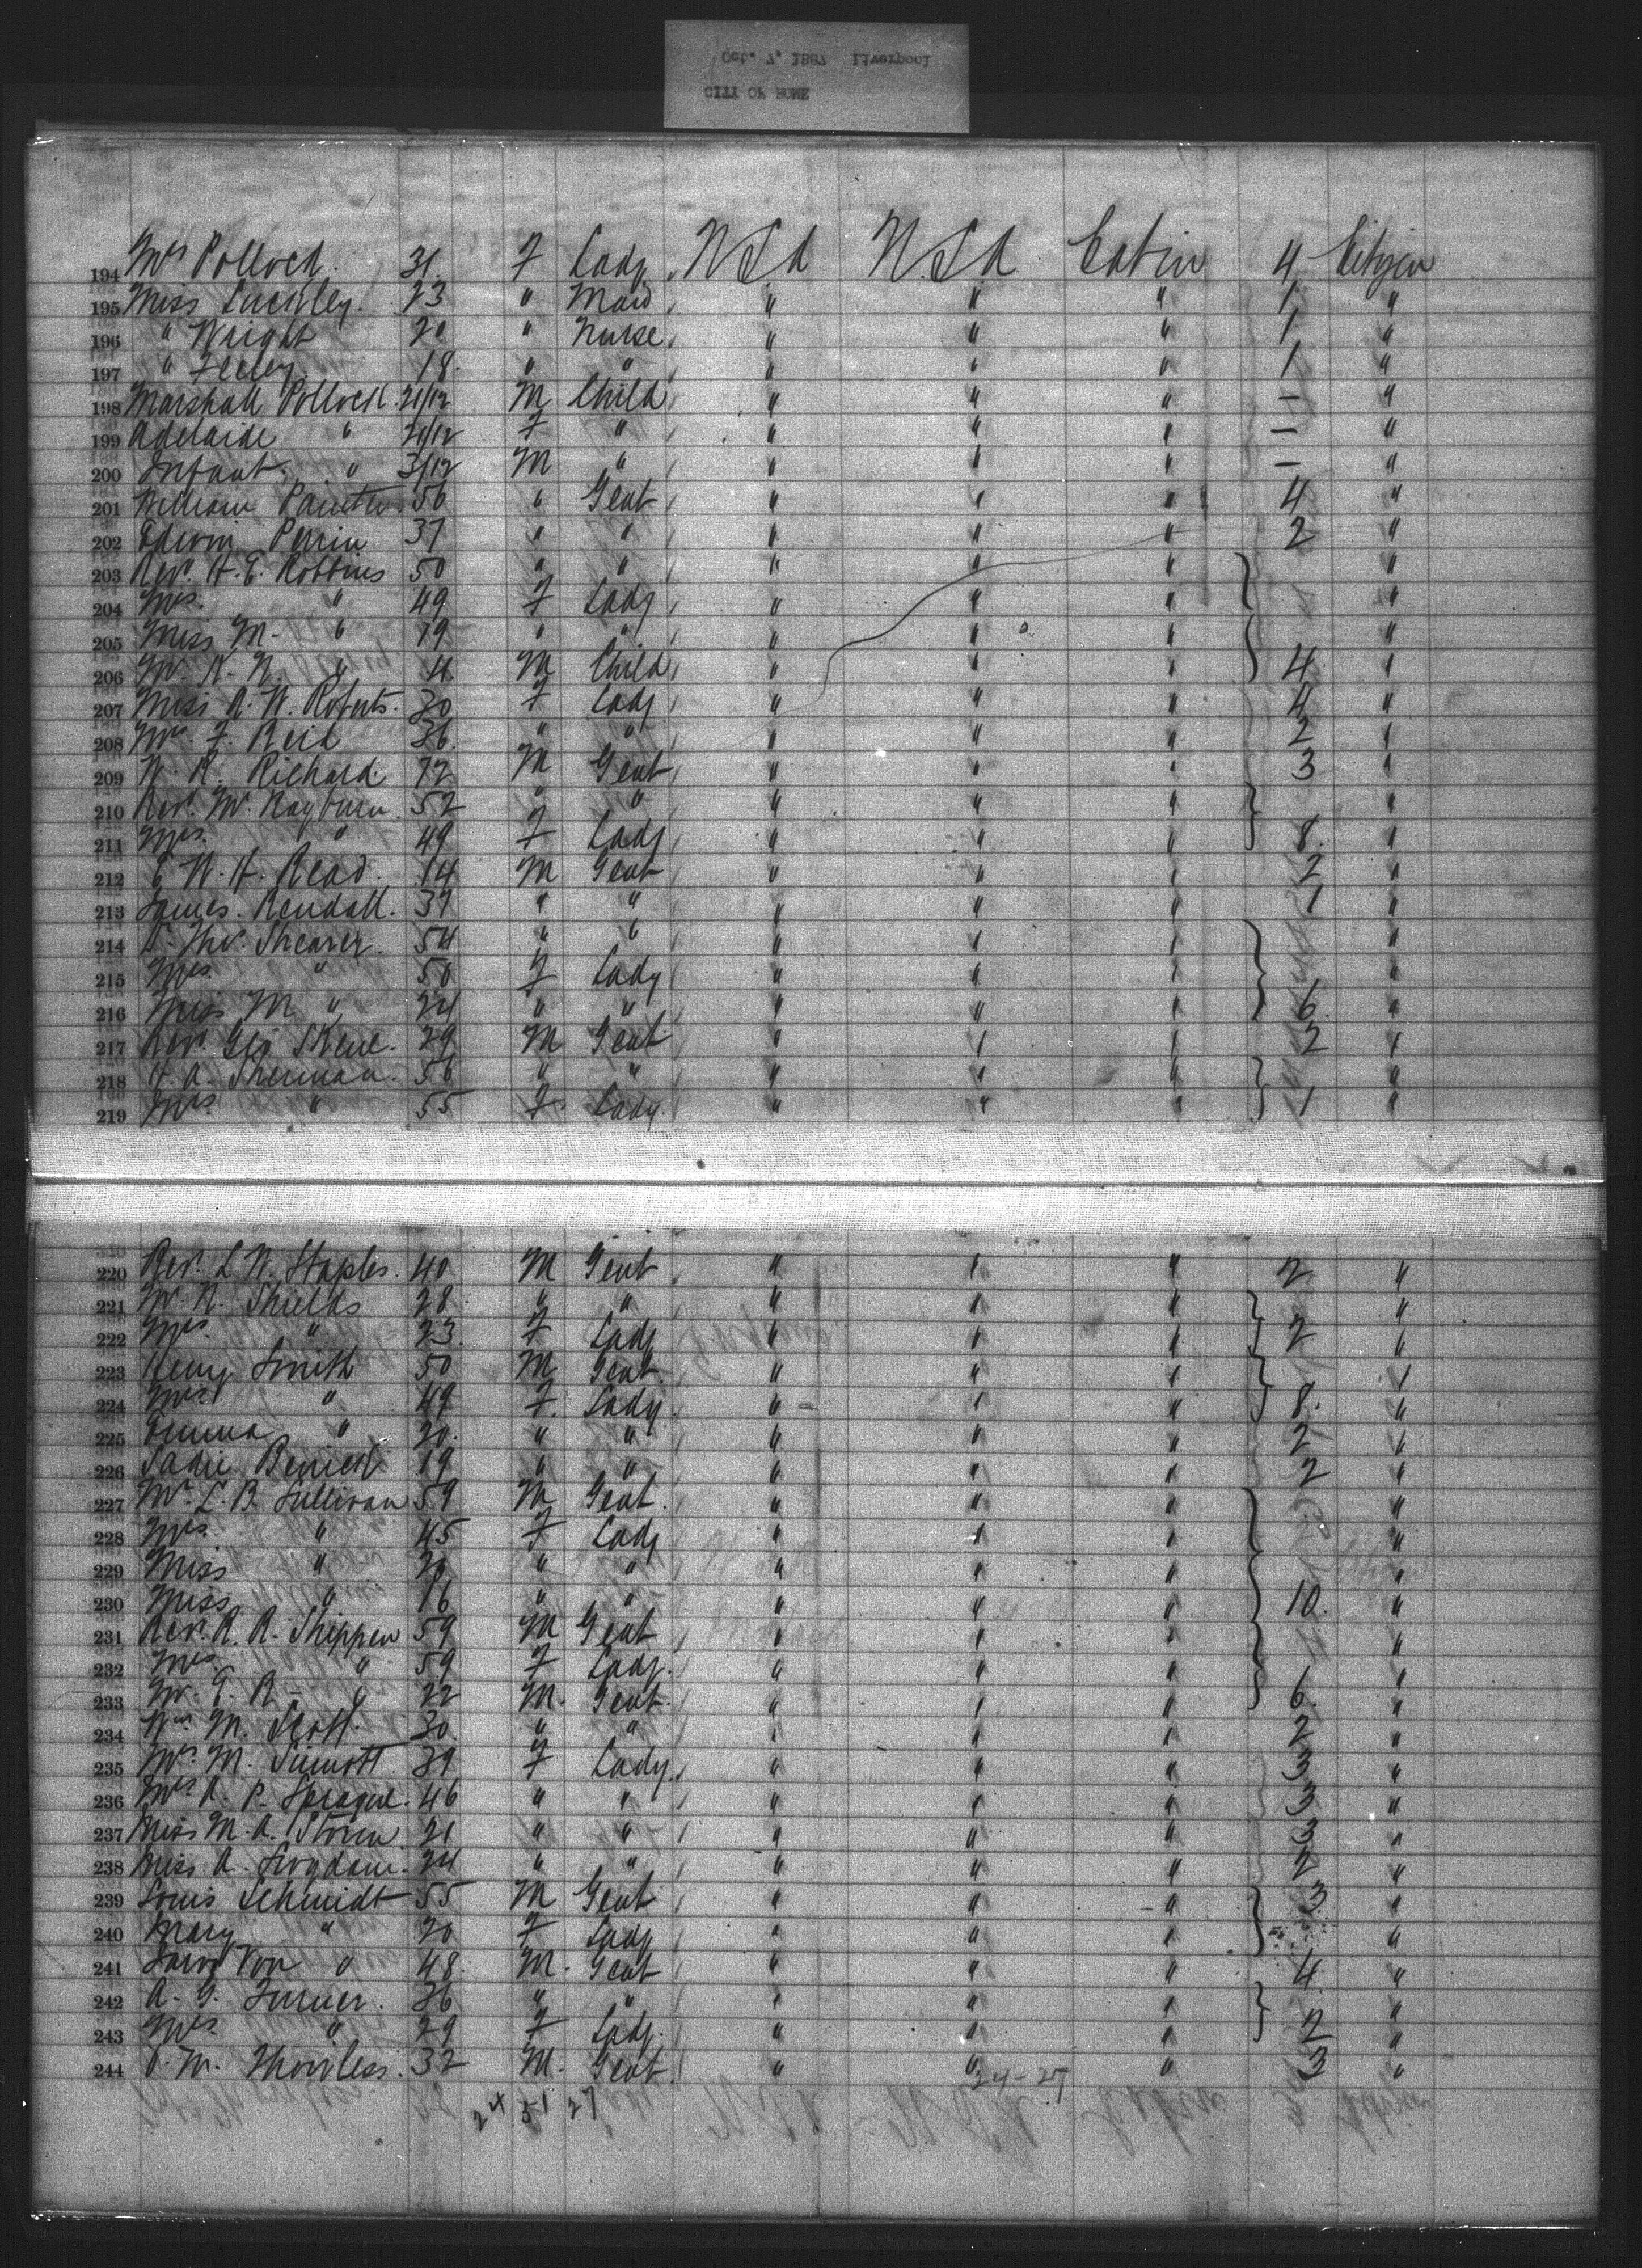 CITY OF ROME
Oct. 7, 1887 Liverpool
194 Mrs Pollock. 31. F Lady. U S A U. S A Cabin 4 Citizen
195 Miss 23 " Maid " " " 1 "
196 " Wright 20 " Nurse " " " 1 "
197 " 18. " " " " " 1 "
198 Marshall Pollock. M Child " " " — "
199 Adelaide " F " " " " — "
200 Infant. " 3/12 M " " " " — "
201 William Painter. 56 " Gent " " " 4 "
202 Edwin Perrin 37 " " " " " 2 "
203 Rev. H. E. Robbins 50 " " " " " "
204 Mrs. " 49 F Lady " " " "
205 Miss M. " 19 " " " " " "
206 " M Child " " " 4 "
207 Miss A. W. Roberts. 30 F Lady " " " 4 "
208 Mrs. F. Reid 36. " " " " " 2 "
209 W. R. Richard. 72 M Gent " " " 3 "
210 Rev. W. Rayburn. 52 " " " " " "
211 Mrs. " 49 F Lady " " " 8. "
212 W. H. Read. 14 M Gent " " " 2 "
213 James. Rendall. 37 " " " " " 1 "
214 Shearer. 54 " " " " " "
215 Mrs " 50 F Lady " " " "
216 Miss M " 24 " " " " " 6. "
217 Rev. Geo Skene. 29 M Gent " " " 2 "
218 H. A. Sherman. 56 " " " " " "
219 Mrs " 55 F. Lady. " " " 1 "
220 Rev. L. W. Staples. 40 M Gent " " " 2 "
221 Shields 28 " " " " " "
222 Mrs. " 23. F Lady " " " 2 "
223 Henry Smith 50 M Gent. " " " "
224 Mrs. " 49 F. Lady. " " " 8. "
225 Emma " 20. " " " " " 2 "
226 Sadie 19 " " " " " 2 "
227 Mr. L. B. Sullivan 59 M Gent. " " " "
228 Mrs. " 45 F Lady " " " "
229 Miss " 20 " " " " " "
230 Miss " 16 " " " " " 10. "
231 Rev. R. R. Shippen 59 M Gent " " " "
232 Mrs. " 59 F Lady. " " " "
233 " 22 M. Gent. " " " 6. "
234 Wm M. Scott. 30. " " " " " 2 "
235 Mrs. M. Sinnott. 39 F Lady. " " " 3 "
236 Mrs A. P. Sprague. 46 " " " " " 3 "
237 Miss M. A. 21 " " " " " 3 "
238 Miss A. 24 " " " " " 2 "
239 Louis Schmidt 55 M Gent " " " 3 "
240 Mary " 20 F Lady " " " "
241 Von " 48. M. Gent " " " 4. "
242 A. G. Turner. 36 " " " " " "
243 Mrs. " 29 F Lady. " " " 2 "
244 32 M. Gent. " " " 3 "
24-27
24 51 27